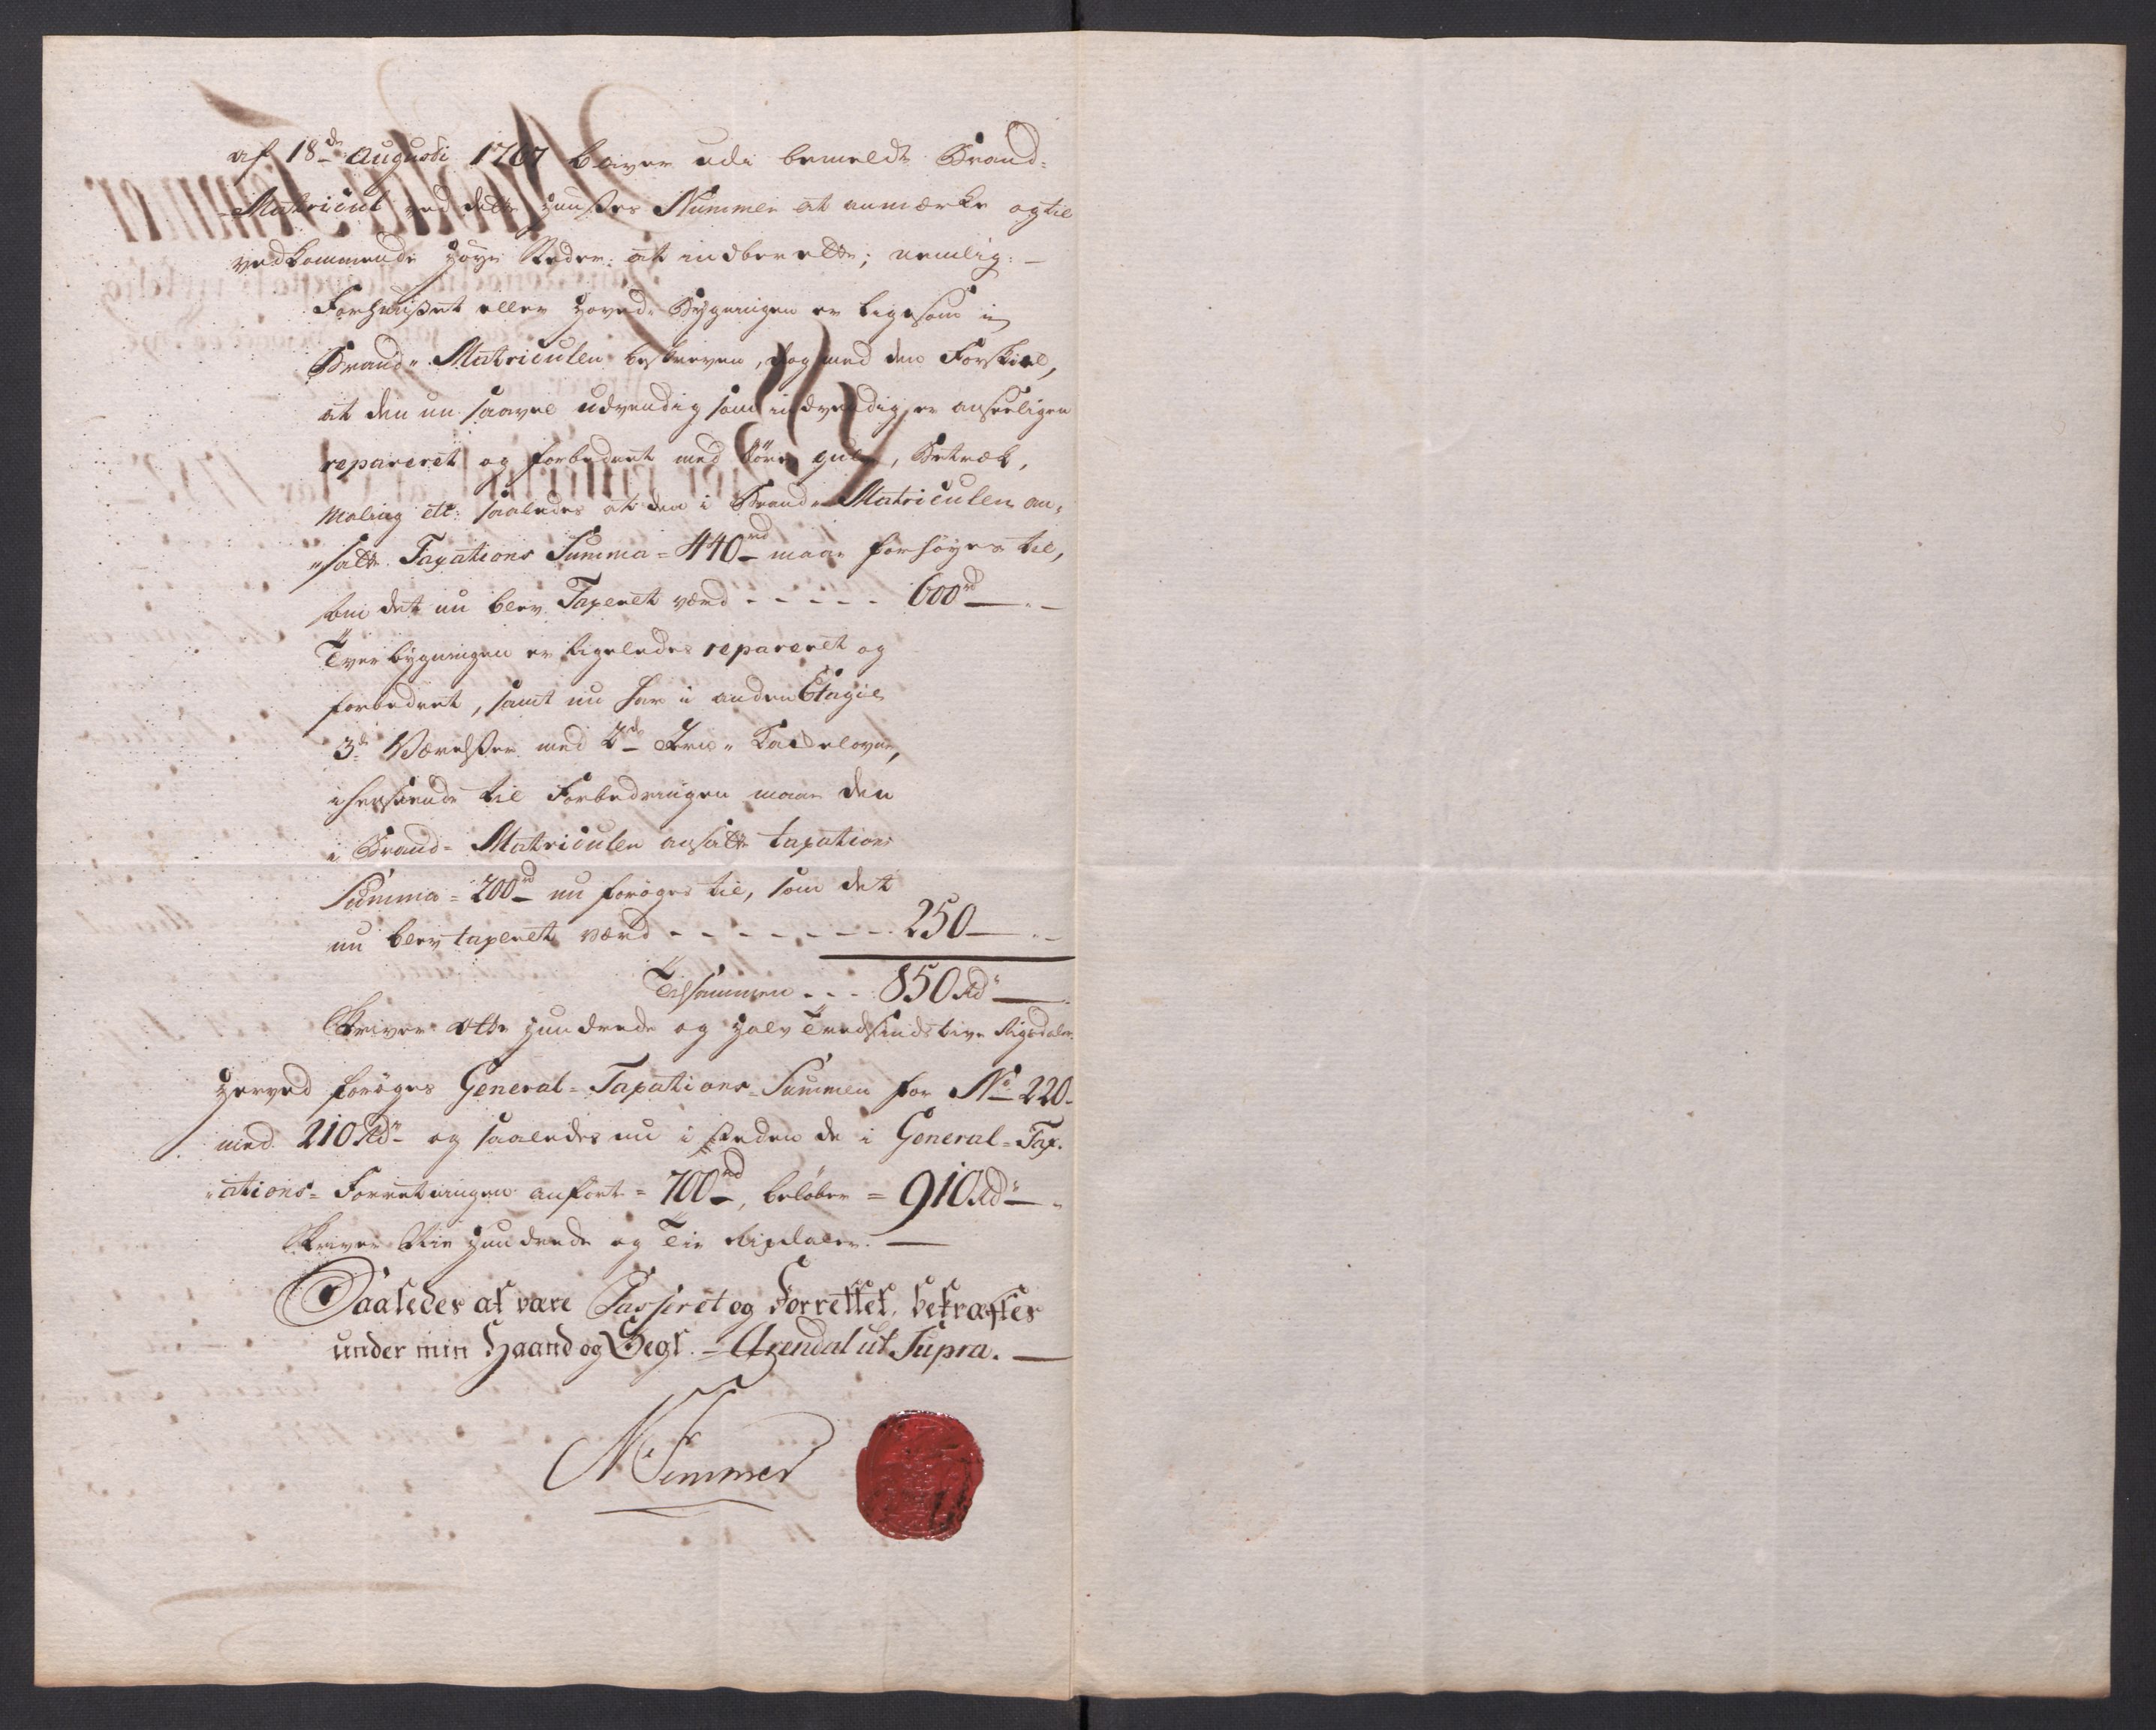 af 18de Augusti 1767 bliver udi bemeldte Brand=
=Matricul ved dette Huuses Nummer at anmærke og til
vedkommende Høye Steder at indberette; nemlig: —
Forhuuset eller Hoved-Bygningen er ligesom i
Brand-Matriculen beskreven, dog med den Forskiel,
at den nu saavel udvendig som indvendig er anseeligen
repareret og forbedret med Døre, gulve, Betræk,
Maling etc: saaledes at den i Brand-Matriculen an-
-satte Taxations Summa = 440rd maae forhøyes til,
som det nu blev Taxeret værd - - - - - 600rd —
Tver bygningen er ligeledes repareret og
forbedret, samt nu har i anden Etagie
3de Værelser med 2de Kakelovne,
i henseende til Forbedringen maae den
i Brand=Matriculen ansatte taxations
Summa = 200rd nu forøges til, som det
nu blev taxeret værd - - - - - - - 250 —
Tilsammen - - - 850 Rdr —
Skriver Otte Hundrede og Halv Tredsindstive Rigsdaler.
Herved forøges General=Taxations=Summen for No 220.
med 210 Rdr og saaledes nu i steden de i General=Tax-
-ations=Forretningen anførte = 700rd, beløber = 910 Rdr —
Skriver Nie Hundrede og Tie Rixdaler. —
Saaledes at være Passeret og Forrettet, bekræftes
under min Haand og Segl. — Arendal ut Supra. —
N Simmer